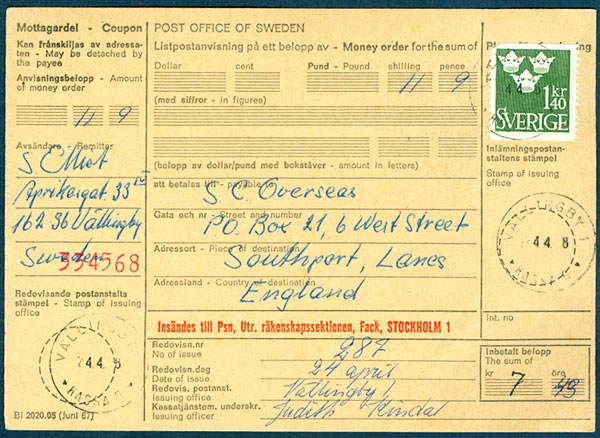 Mottagardel - Coupon
Kan frånskiljas av adressa-
ten - May be detached by
the payee
Anvisningsbelopp - Amount
of money order
11 9
Avsändare - Remitter
Aprikosgat. 33 IV
162 36 Vällingby
Sweden
334568
Redovisande postanstalts
stämpel - Stamp of issuing
office
VÄLLINGBY 1
24 4
KASSA
BI 2020.05 (Juni 67)
POST OFFICE OF SWEDEN
Listpostanvisning på ett belopp av - Money order for the sum of
Dollar cent Pund - Pound shilling pence
11 9
(med siffror - in figures)
(belopp av dollar/pund med bokstäver - amount in letters)
att betalas till - payable to
S. C. Overseas
Gata och nr - Street and number
P.O. Box 21, 6 West Street
Adressort - Place of destination
Southport, Lancs
Adressland - Country of destination
England
Insändes till Psn, Utr. räkenskapssektionen, Fack, STOCKHOLM 1
Redovisn.nr
No of issue
287
Redovisn.dag
Date of issue
24 april
Redovis. postanst.
Issuing office
Vällingby 1
Kassatjänstem. underskr.
Issuing officer
Judith Kindal
1 kr
40
SVERIGE
Inlämningspostan-
staltens stämpel
Stamp of issuing
office
VÄLLINGBY 1
44 8
KASSA
Int. no
Inbetalt belopp
The sum of
kr öre
7 43